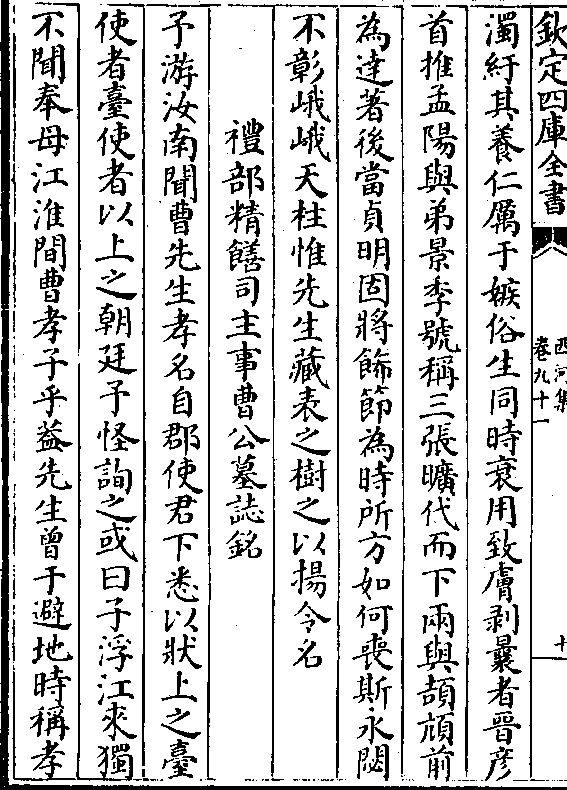 欽定四庫全書
西河集
卷九十一
十
濁紆其養仁厲于嫉俗生同時衰用致膚剥曩者晉彦
首推孟陽與弟景季號稱三張曠代而下兩與頡頏前
為達著後當貞明固將飾節為時所方如何喪斯永閟
不彰峨峨天柱惟先生藏表之樹之以揚令名
禮部精饍司主事曹公墓誌銘
予游汝南聞曹先生孝名自郡使君下悉以狀上之臺
使者臺使者以上之朝廷予怪詢之或曰子浮江來獨
不聞奉母江淮間曹孝子乎葢先生曾于避地時稱孝